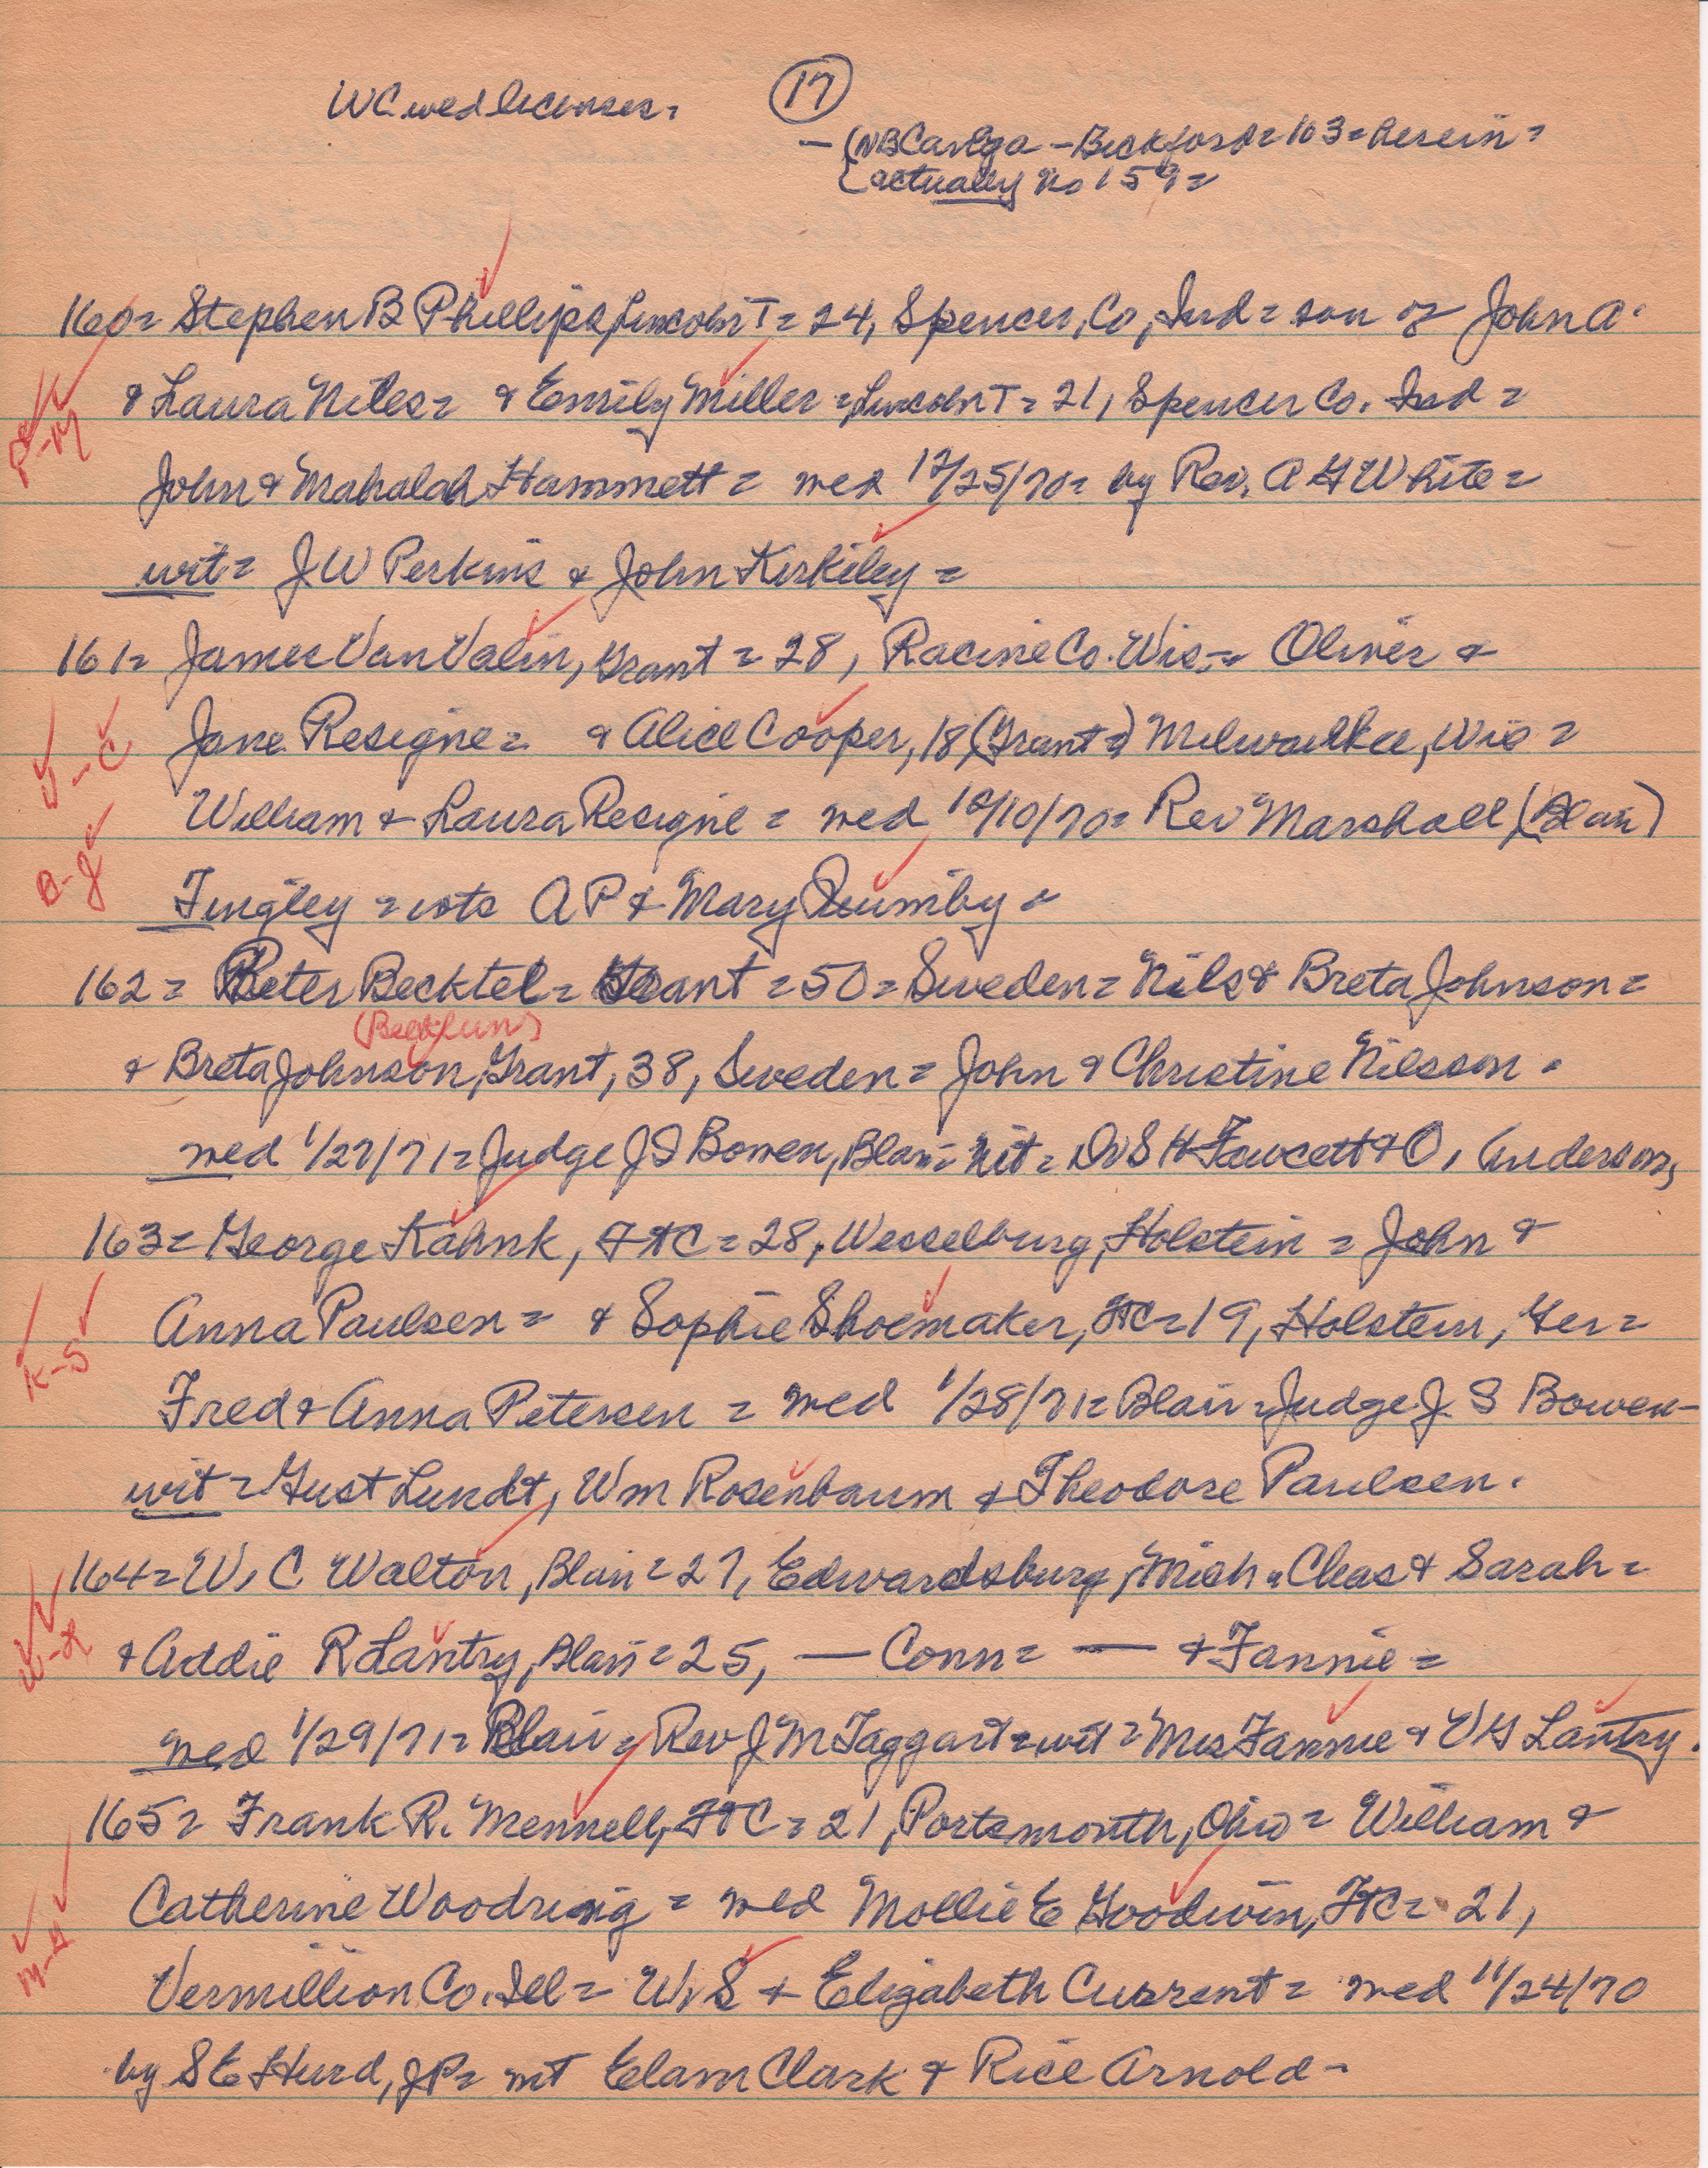 WC wed licenses=
17
— (NB Carlga - Beckford = 103 = herein =
( actually no 159 =
160= Stephen B Phillips, Lincoln T = 24, Spencer, Co, Ind = son of John A.
& Laura Niles = & Emily Miller = Lincoln T = 21, Spencer Co. Ind =
P-M
John & Mahalah Hammett = wed 12/25/70 = by Rev. A G White =
wit = J W Perkins & John Kirkiley =
161= James Van Valin, Grant = 28, Racine Co. Wis = Oliver &
V-C
Jane Resigne = & Alice Cooper, 18 (Grant =) Milwaulkee, Wis =
William & Laura Resigne = wed 12/10/70 = Rev Marshall (Blair)
B-J
Tingley = wts A P & Mary Quimby =
162 = Peter Becktel = Grant = 50 = Sweden = Nils & Breta Johnson =
& Breta Johnson, Grant, 38, Sweden = John & Christine Nilsson.
wed 1/27/71 = Judge J S Bowen, Blair = Wit = Dr S H Fawcett & O. Anderson,
163 = George Kahnk, FtC = 28, Wesselburg, Holstein = John &
Anna Paulsen = & Sophie Shoemaker, FtC = 19, Holstein, Ger =
K-S
Fred & Anna Petersen = wed 1/28/71 = Blair = Judge J. S Bowen -
wit = Gust Lundt, Wm Rosenbaum & Theodore Paulsen.
164 = W. C Walton, Blair = 27, Edwardsburg, Mich = Chas & Sarah =
W-L
& Addie R Lantry, Blair = 25, — Conn = — & Fannie =
wed 1/29/71 = Blair = Rev J M Taggart = wit = Mrs Fannie & V G Lantry.
165 = Frank R. Mennell, FtC = 21, Portsmouth, Ohio = William &
Catherine Woodring = wed Mollie E Goodwin, FtC = 21,
M-G
Vermillion Co. Ill = W. S & Elizabeth Current = wed 11/24/70
by S E Hurd, JP = wit Elam Clark & Rice Arnold -